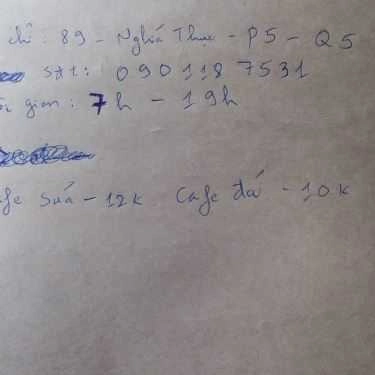 chỉ : 89 - Nghĩa Thục - P5 - Q5
sđt : 090 118 7531
gian : 7h - 19h
Cafe sữa - 12k Cafe đá - 10k